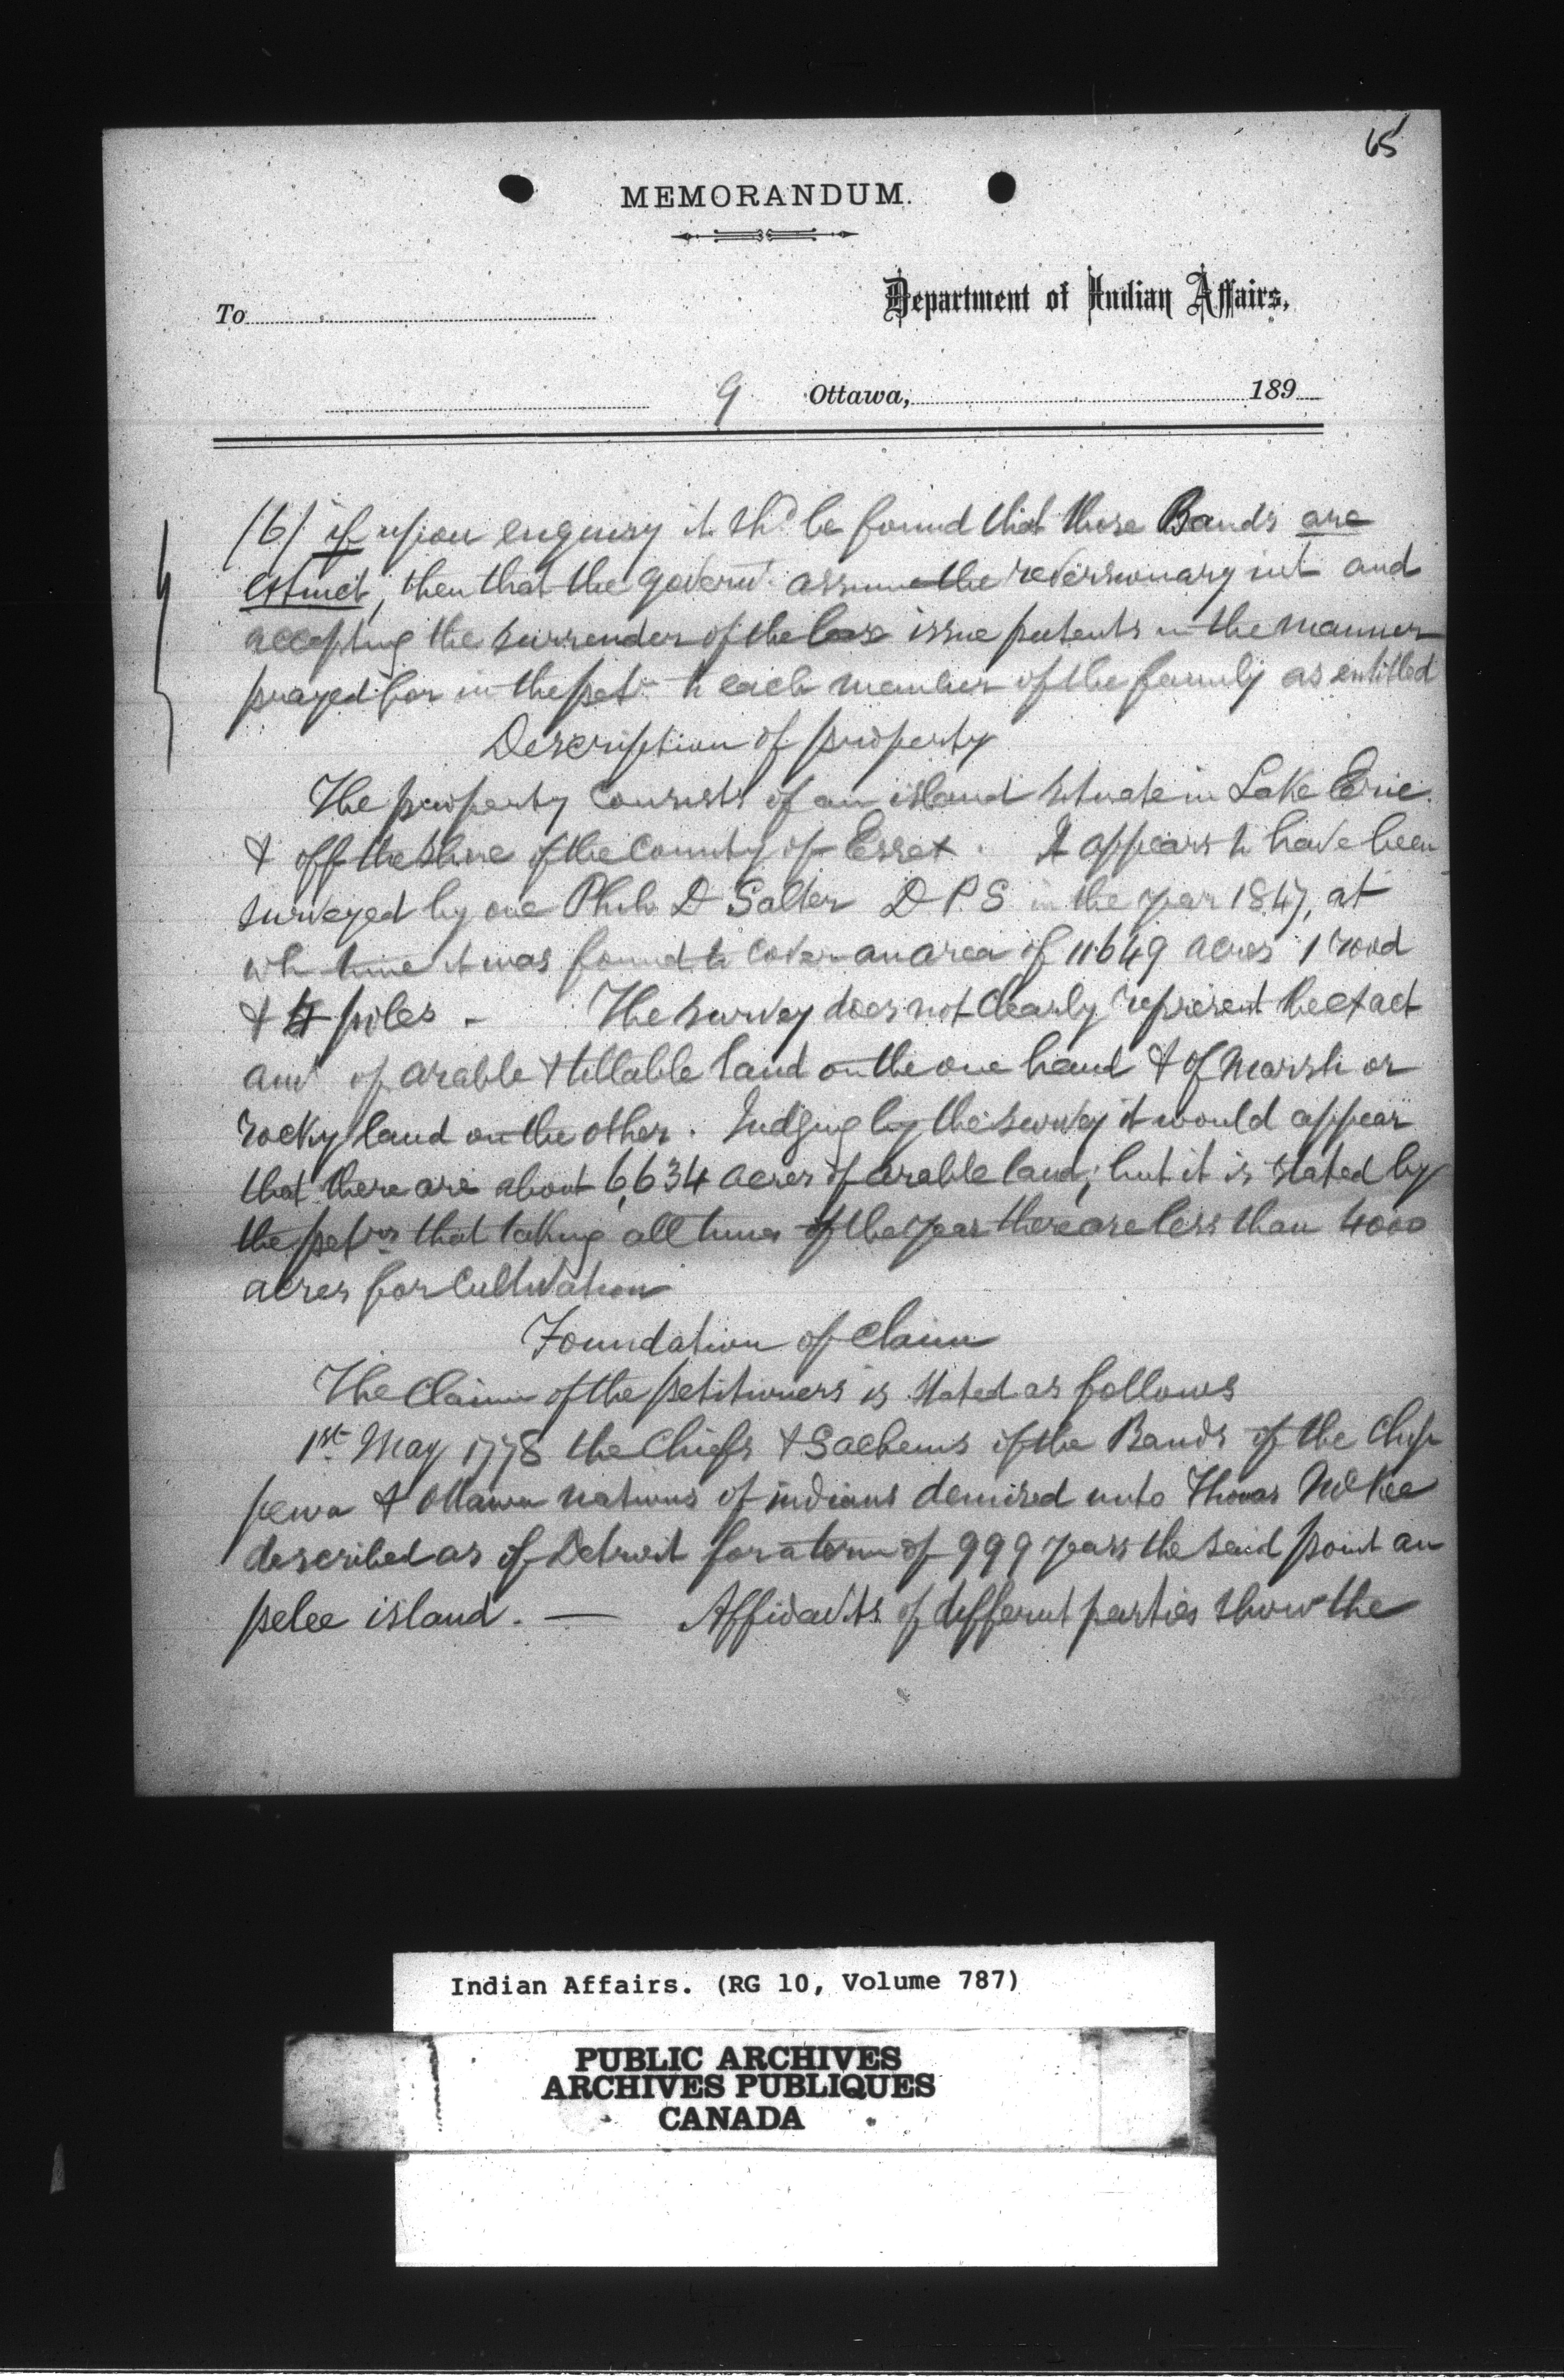 65
MEMORANDUM.
Department of Indian Affairs,
To
9 Ottawa, 189
(6) if upon enquiry it shd be found that those Bands are
extinct, then that the governt. assume the reversionary int and
accepting the surrender of the lease issue patents in the manner
prayed for in the petn to each member of the family as entitled
Description of property
The property consists of an island situate in Lake Erie
& off the shore of the County of Essex. It appears to have been
surveyed by one Philo D Salter D P. S in the year 1847, at
wh time it was found to cover an area of 11649 acres 1 rood
& 4 poles - The survey does not clearly represent the exact
amt of arable & tillable land on the one hand & of marsh or
rocky land on the other. Judging by the survey it would appear
that there are about 6,634 acres of arable land; but it is stated by
the petrs that taking all times of the year there are less than 4000
acres for cultivation
Foundation of claim
The claim of the petitioners is stated as follows
1st May 1778 the Chiefs & Sachems of the Bands of the Chip
pewa & Ottawa nations of indians demised unto Thomas McKee
described as of Detroit for a term of 999 years the said point au
pelee island. — Affidavits of different parties show the
Indian Affairs. (RG 10, Volume 787)
PUBLIC ARCHIVES
ARCHIVES PUBLIQUES
CANADA